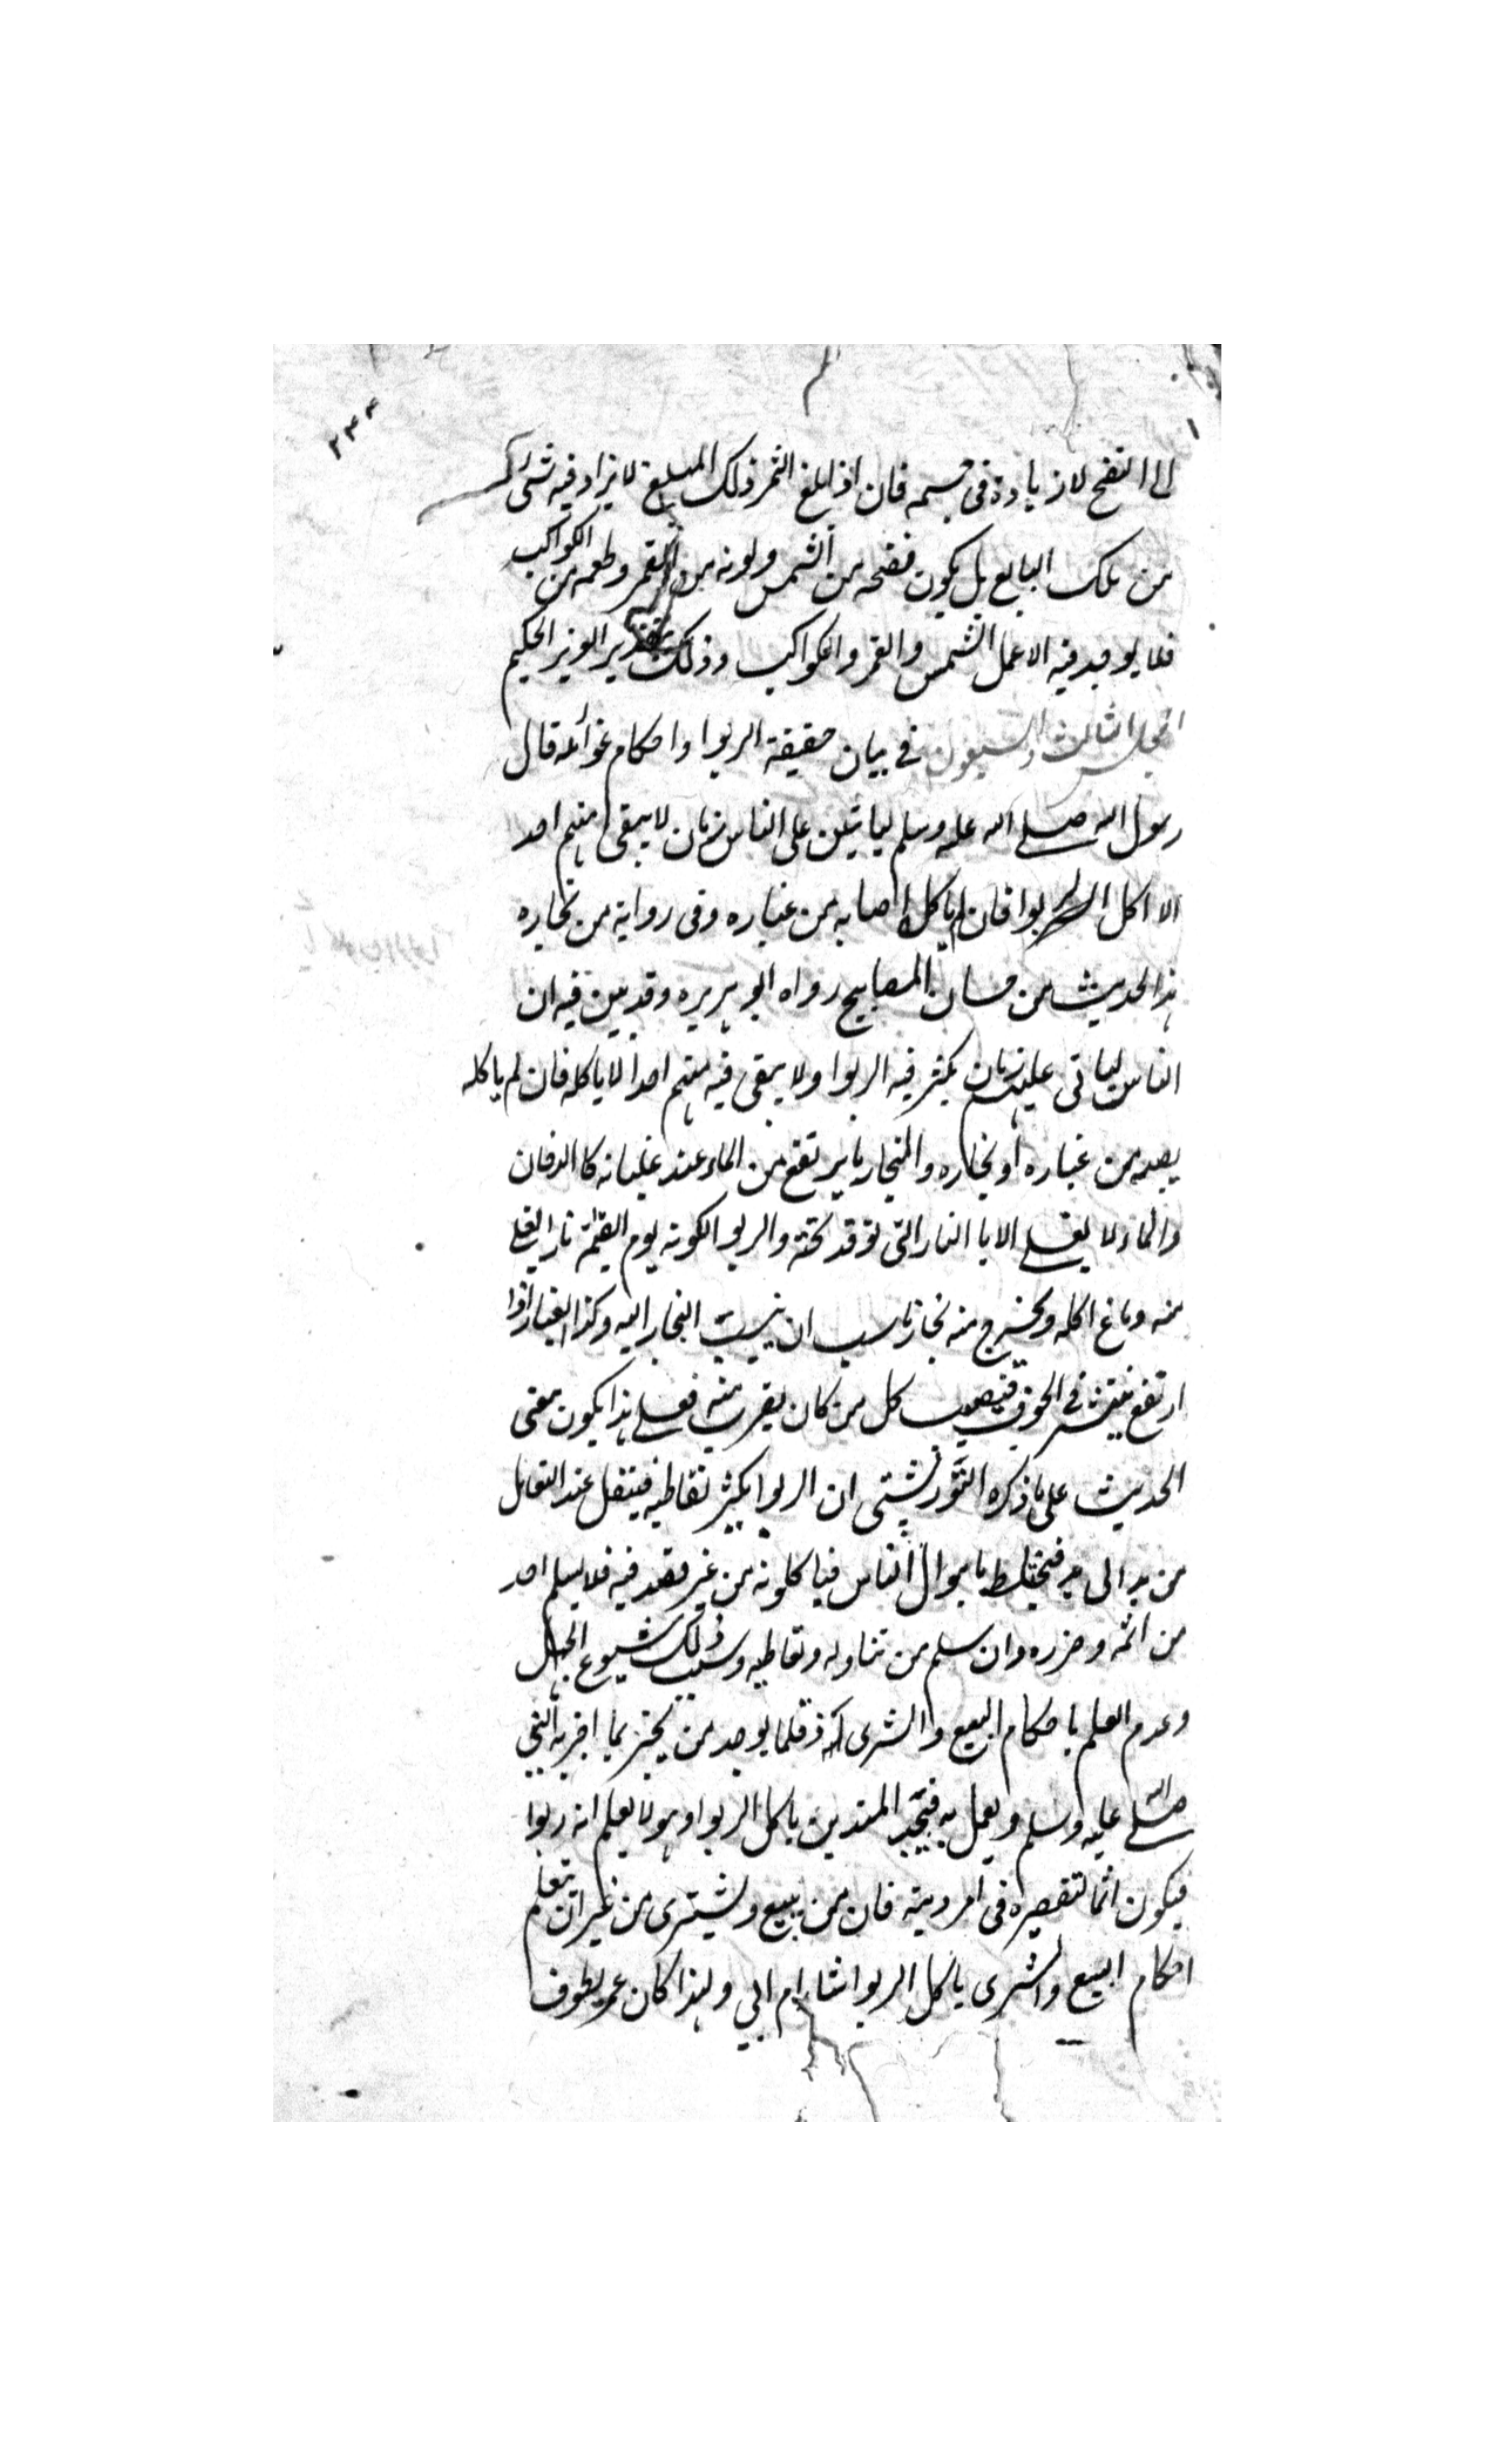 ٢٣٤
الى النضج لا زيادة فى جسمه فان اذا بلغ الثمر ذلك المبلغ لا يزاد فيه شئ
من ملك البايع بل يكون نضجه من الشمس ولونه من القمر وطعمه من الكواكب
فلا يوجد فيه الا عمل الشمس والقمر والكواكب وذلك تقدير العزيز الحكيم
المجلس الثالث والسبعون فى بيان حقيقة الربوا واحكام غوائله قال
رسول الله صلے الله عليه وسلم لياتين على الناس زمان لا يبقى منهم احد
الا اكل الربوا فان لم ياكل اصابه من غباره وفى رواية من بخاره
هذا الحديث من حسان المصابيح رواه ابو هريره وقد بين فيه ان
الناس لياتى عليهم زمان يكثر فيه الربوا ولا يبقى فيه منهم احد الا ياكله فان لم ياكله
يصبه من غباره او بخاره والبخار ما يرتفع من الماء عند غليانه كالدخان
والماء لا يغلے الا با النار التى توقد تحته والربوا لكونه يوم القيمة نارا يغلے
منه دماغ اكله ويخرج منه بخار ناسب ان ينسب البخار اليه وكذا الغبار اذا
ارتفع ينتشر فى الجو فيصيب كل من كان يقرب منه فعلے هذا يكون معنى
الحديث على ما ذكره التورپشتى ان الربوا يكثر تعاطيه فينتقل عند التعامل
من يد الى يد فيختلط باموال الناس فيا كلونه من غير قصد فيه فلا يسلم احد
من اثمه وضرره وان سلم من تناوله وتعاطيه وسبب ذلك شيوع الجهل
وعدم العلم باحكام البيع والشرى اذ قلما يوجد من يخبر بما اخبر به النبى
صلے الله عليه وسلم ويعمل به فتجد المتدين ياكل الربوا وهو لا يعلم انه ربوا
فيكون اثما لتقصيره فى امر دينه فان من يبيع ويشترى من غير ان يتعلم
احكام البيع والشرى ياكل الربوا شاء ام ابى ولهذا كان عمر يطوف